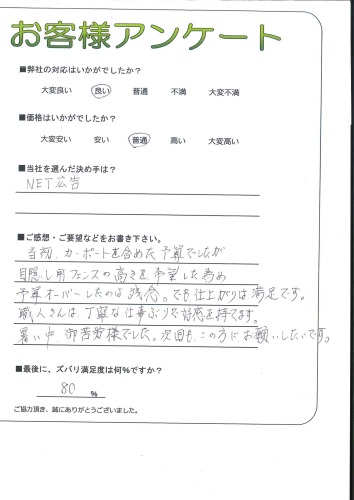 お客様アンケート
■弊社の対応はいかがでしたか?
大変良い 良い 普通 不満 大変不満
■価格はいかがでしたか?
大変安い 安い 普通 高い 大変高い
■当社を選んだ決め手は?
NET広告
■ご感想・ご要望などをお書き下さい。
当初、カーポートを含めた予算でしたが
目隠し用フェンスの高さを希望した為め
予算オーバーしたのは残念。でも仕上がりは満足です。
職人さんは、丁寧な仕事ぶりで好感を持てます。
暑い中、御苦労様でした。次回も、この方にお願いしたいです。
■最後に、ズバリ満足度は何%ですか?
80 %
ご協力頂き、誠にありがとうございました。